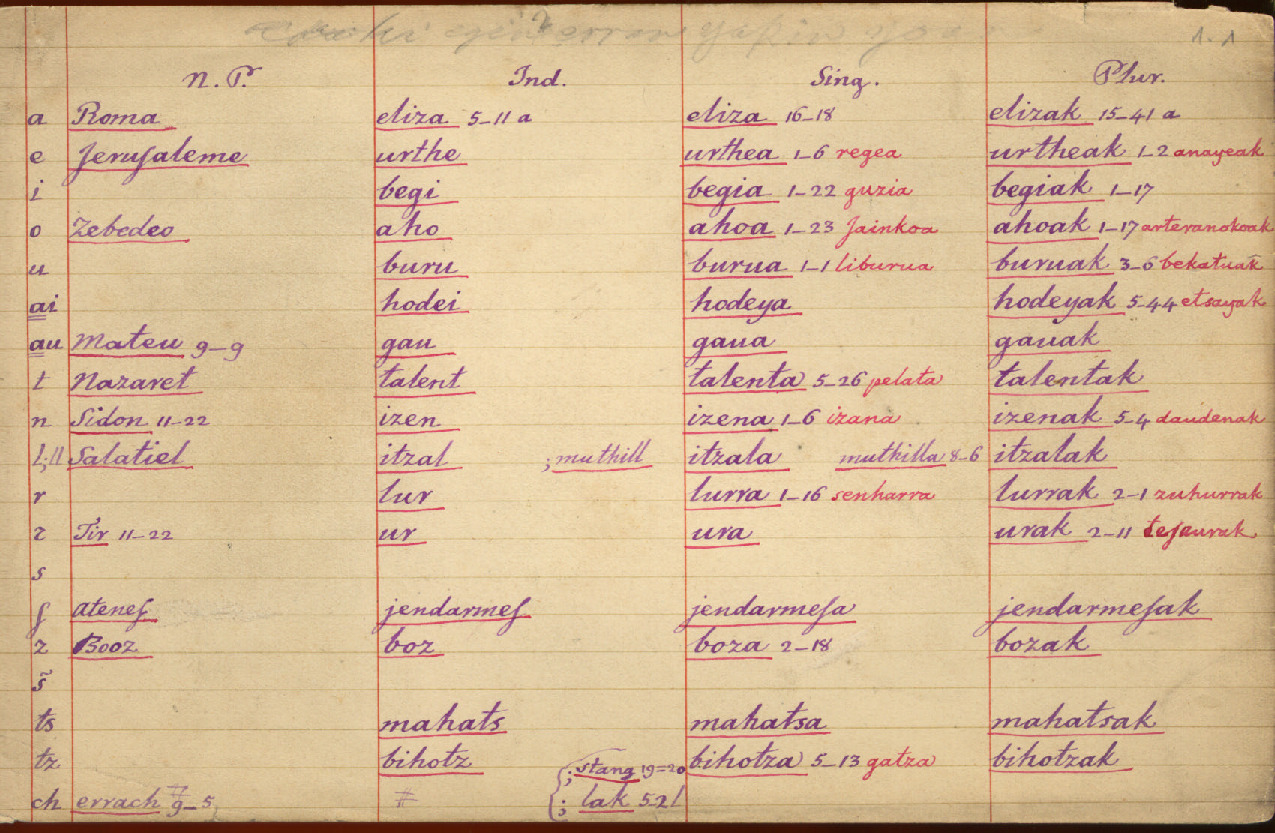 1.1
N.P. Ind. Sing. Plur.
a Roma eliza 5-11 a eliza 16-18 elizak 15-41 a
e Jeruſaleme urthe urthea 1-6 regea urtheak 1-2 anayeak
i begi begia 1-22 guzia begiak 1-17
o Zebedeo aho ahoa 1-23 Jainkoa ahoak 1-17 arteranokoak
u buru burua 1-1 liburua buruak 3-6 bekatuak
ai hodei hodeya hodeyak 5-44 etsayak
au Mateu 9-9 gau gaua gauak
t Nazaret talent talenta 5-26 pelata talentak
n Sidon 11-22 izen izena 1-6 izana izenak 5-4 daudenak
l;ll Salatiel itzal ; muthill itzala muthilla 8-6 itzalak
r lur lurra 1-16 senharra lurrak 2-1 zuhurrak
r Tir 11-22 ur ura urak 2-11 teſaurak
s
ſ Ateneſ jendarmeſ jendarmeſa jendarmeſak
z Booz boz boza 2-18 bozak
s̃
ts mahats mahatsa mahatsak
tz bihotz ; stang 19=20 bihotza 5-13 gatza bihotzak
ch errach # 9-5 # ; lak 5-21